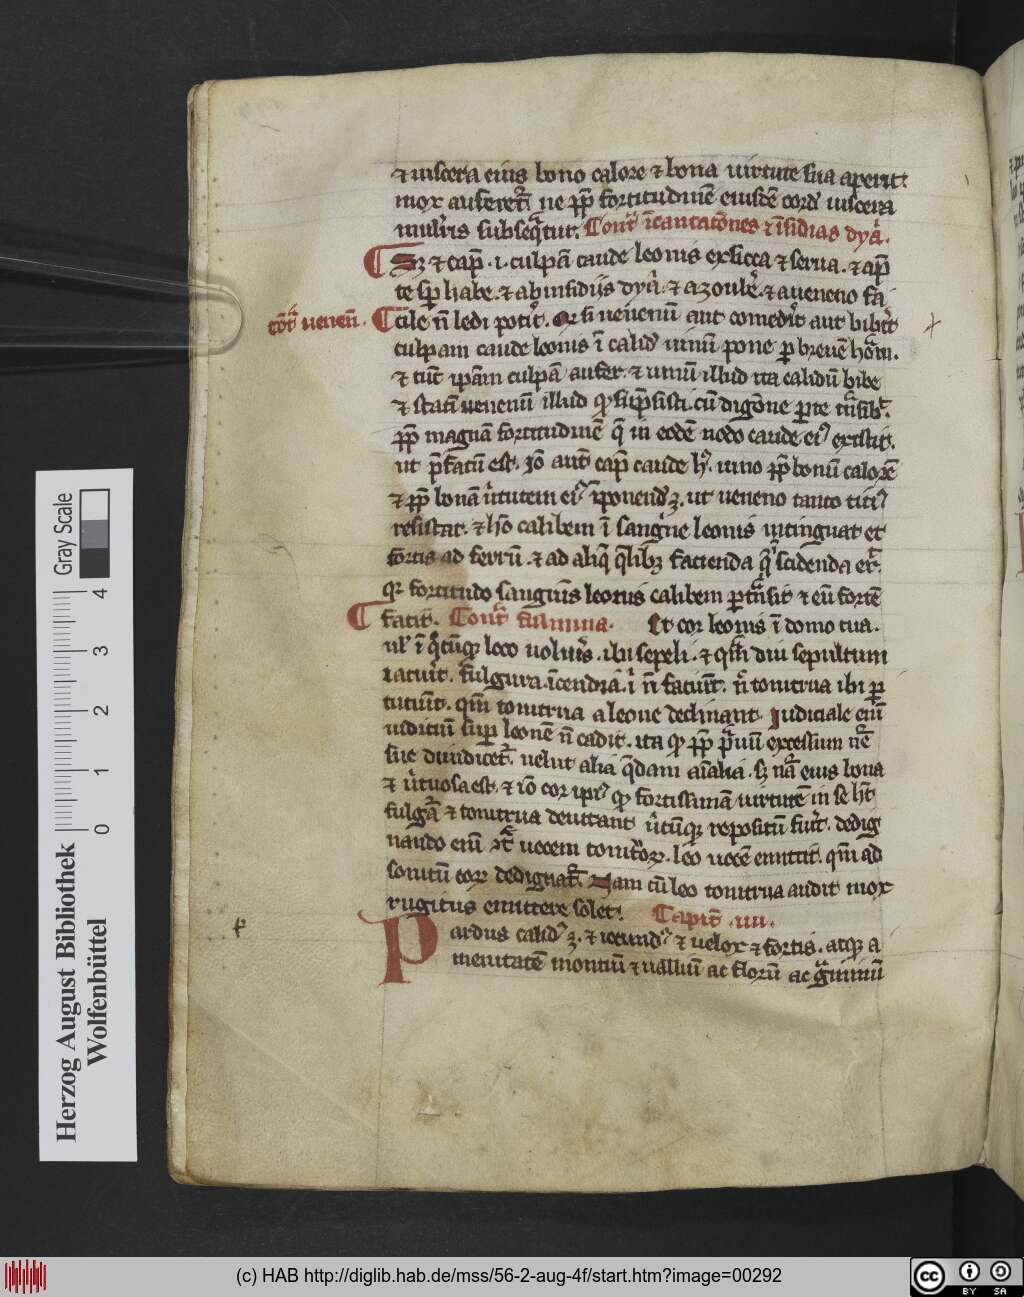 ⁊ uiscera eius bono calore ⁊ bona uirtute sua aperit.
mox auferetᷓ ne ꝓp̄ fortitudinē eiusdē cord᷒ uiscera
mulr̄is subseq̄tur. Cont᷑ īcantatōnes ⁊ īsidias dyā.
⁊ cap̄ .i. culpā caude leonis exsicca ⁊ serua. ⁊ ap̄
te sp̄ habe. ⁊ ab insidijs dyā. ⁊ a ⁊ a ueneno fa
cōt᷑ uenenū.
cile n̄ ledi potit᷑. si uenenū aut comedit᷑ aut bibit᷑
culpam caude leonis ī calid᷒ uinū pone ꝑ breuē hōm.
⁊ tūc ipam culpā aufer. ⁊ uinū illud ita calidū bibe
⁊ statī uenenū illud ꝙ sūpsisti. cū digōne ꝑ te
ꝓp̄ magnā fortitudinē q̄ in eodē nodo caude ei᷒ existit.
ut p̄fatū est. Iō aut̄ cap̄ caude h᷒. uino ꝓp̄ bonū calorē
⁊ ꝓp̄ bonā u̓tutem ei᷒ īponend᷒ ꝫ. ut ueneno tanto citi᷒
resistat. ⁊ calibem ī sangi̓ne leonis intinguat et
fortis ad ferrū. ⁊ ad aliq̄ q̄libꝫ facienda scidenda er̄.
qꝛ fortitudo sanguīs leonis calibem ꝑtn̄sit ⁊ eū fortē
facit. Cont᷑ fulmina. Et cor leonis ī domo tua.
ul̓ ī q̄cūqꝫ loco uolu̓is. ibi sepeli. ⁊ qm̄ diu sepultum
iacuit᷑. fulgura. īcendiā. n̄ faciūt. n̄ tonitrua ibi ꝑ
cutiūt. qm̄ tonitrua a leone declinant. Iudiciale enī
iudiciū sup̄ leonē n̄ cadit. ita ꝙ ꝓp̄ excessum
sue diiudicet᷑. uelut alia q̄dam aīalia. sꝫ nāᷓ eius bona
⁊ u̓tuosa est. ⁊ iō cor ipi᷒ ꝙ fortissimam uirtutē in se hēt
fulgᷓa ⁊ tonitrua deuitant u̓cūqꝫ repositū fuit᷑. dedig
nando enī uocem tonit᷑oꝝ. leo uocē emittit. qm̄ ad
sonitū eoꝝ dedignat᷑. Nam cū leo tonitrua audit mox
rugitus emittere solet. Capit᷑ .iiii.
Pardus calid᷒ ꝫ. ⁊ iocund᷒ ⁊ uelox ⁊ fortis. atqꝫ a
menitatē montiū ⁊ ualliū ac florū ac gᷓminū
Gray Scale
0 1 2 3 4
Herzog August Bibliothek
Wolfenbüttel
(c) HAB http://diglib.hab.de/mss/56-2-aug-4f/start.htm?image=00292
cc BY SA